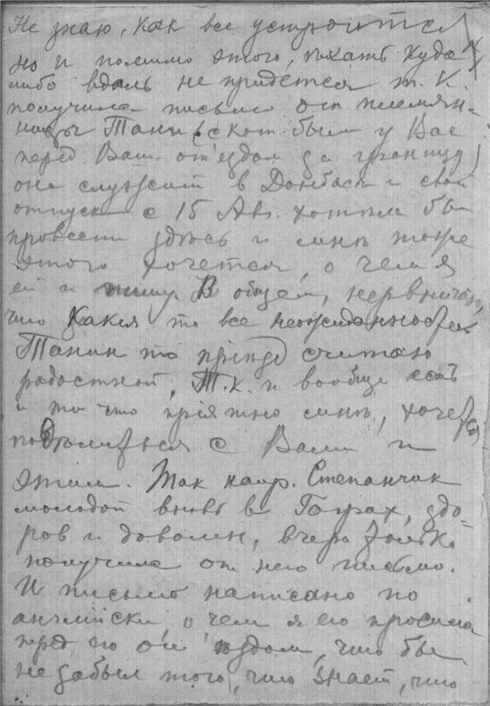 Не знаю, как все устроится
но и помимо этого, ѣхать куда
либо вдаль не придется т. к.
получила письмо от племян-
ницы Тани (скот. был у Вас
перед Ваш. от'ездом за границу)
она служит в Донбасе и свой
отпуск с 15 Авг. хотѣла бы
провести здѣсь и мнѣ тоже
этого хочется, о чем я
ей и пишу. В общем, нервничаю,
что какия то все неожиданности
Танин то приезд считаю
радостной, Т. к. и вообще есть
и то что прiятно мнѣ, хочется
подѣлиться с Вами и
этим. Так напр. Степанчик
молодой вновь в Гаграх, здо-
ров и доволен, вчера только
получила от него письмо.
И письмо написано по
английски о чем я его просила
перед его от'ѣздом, что бы
не забыл того, что знает, что